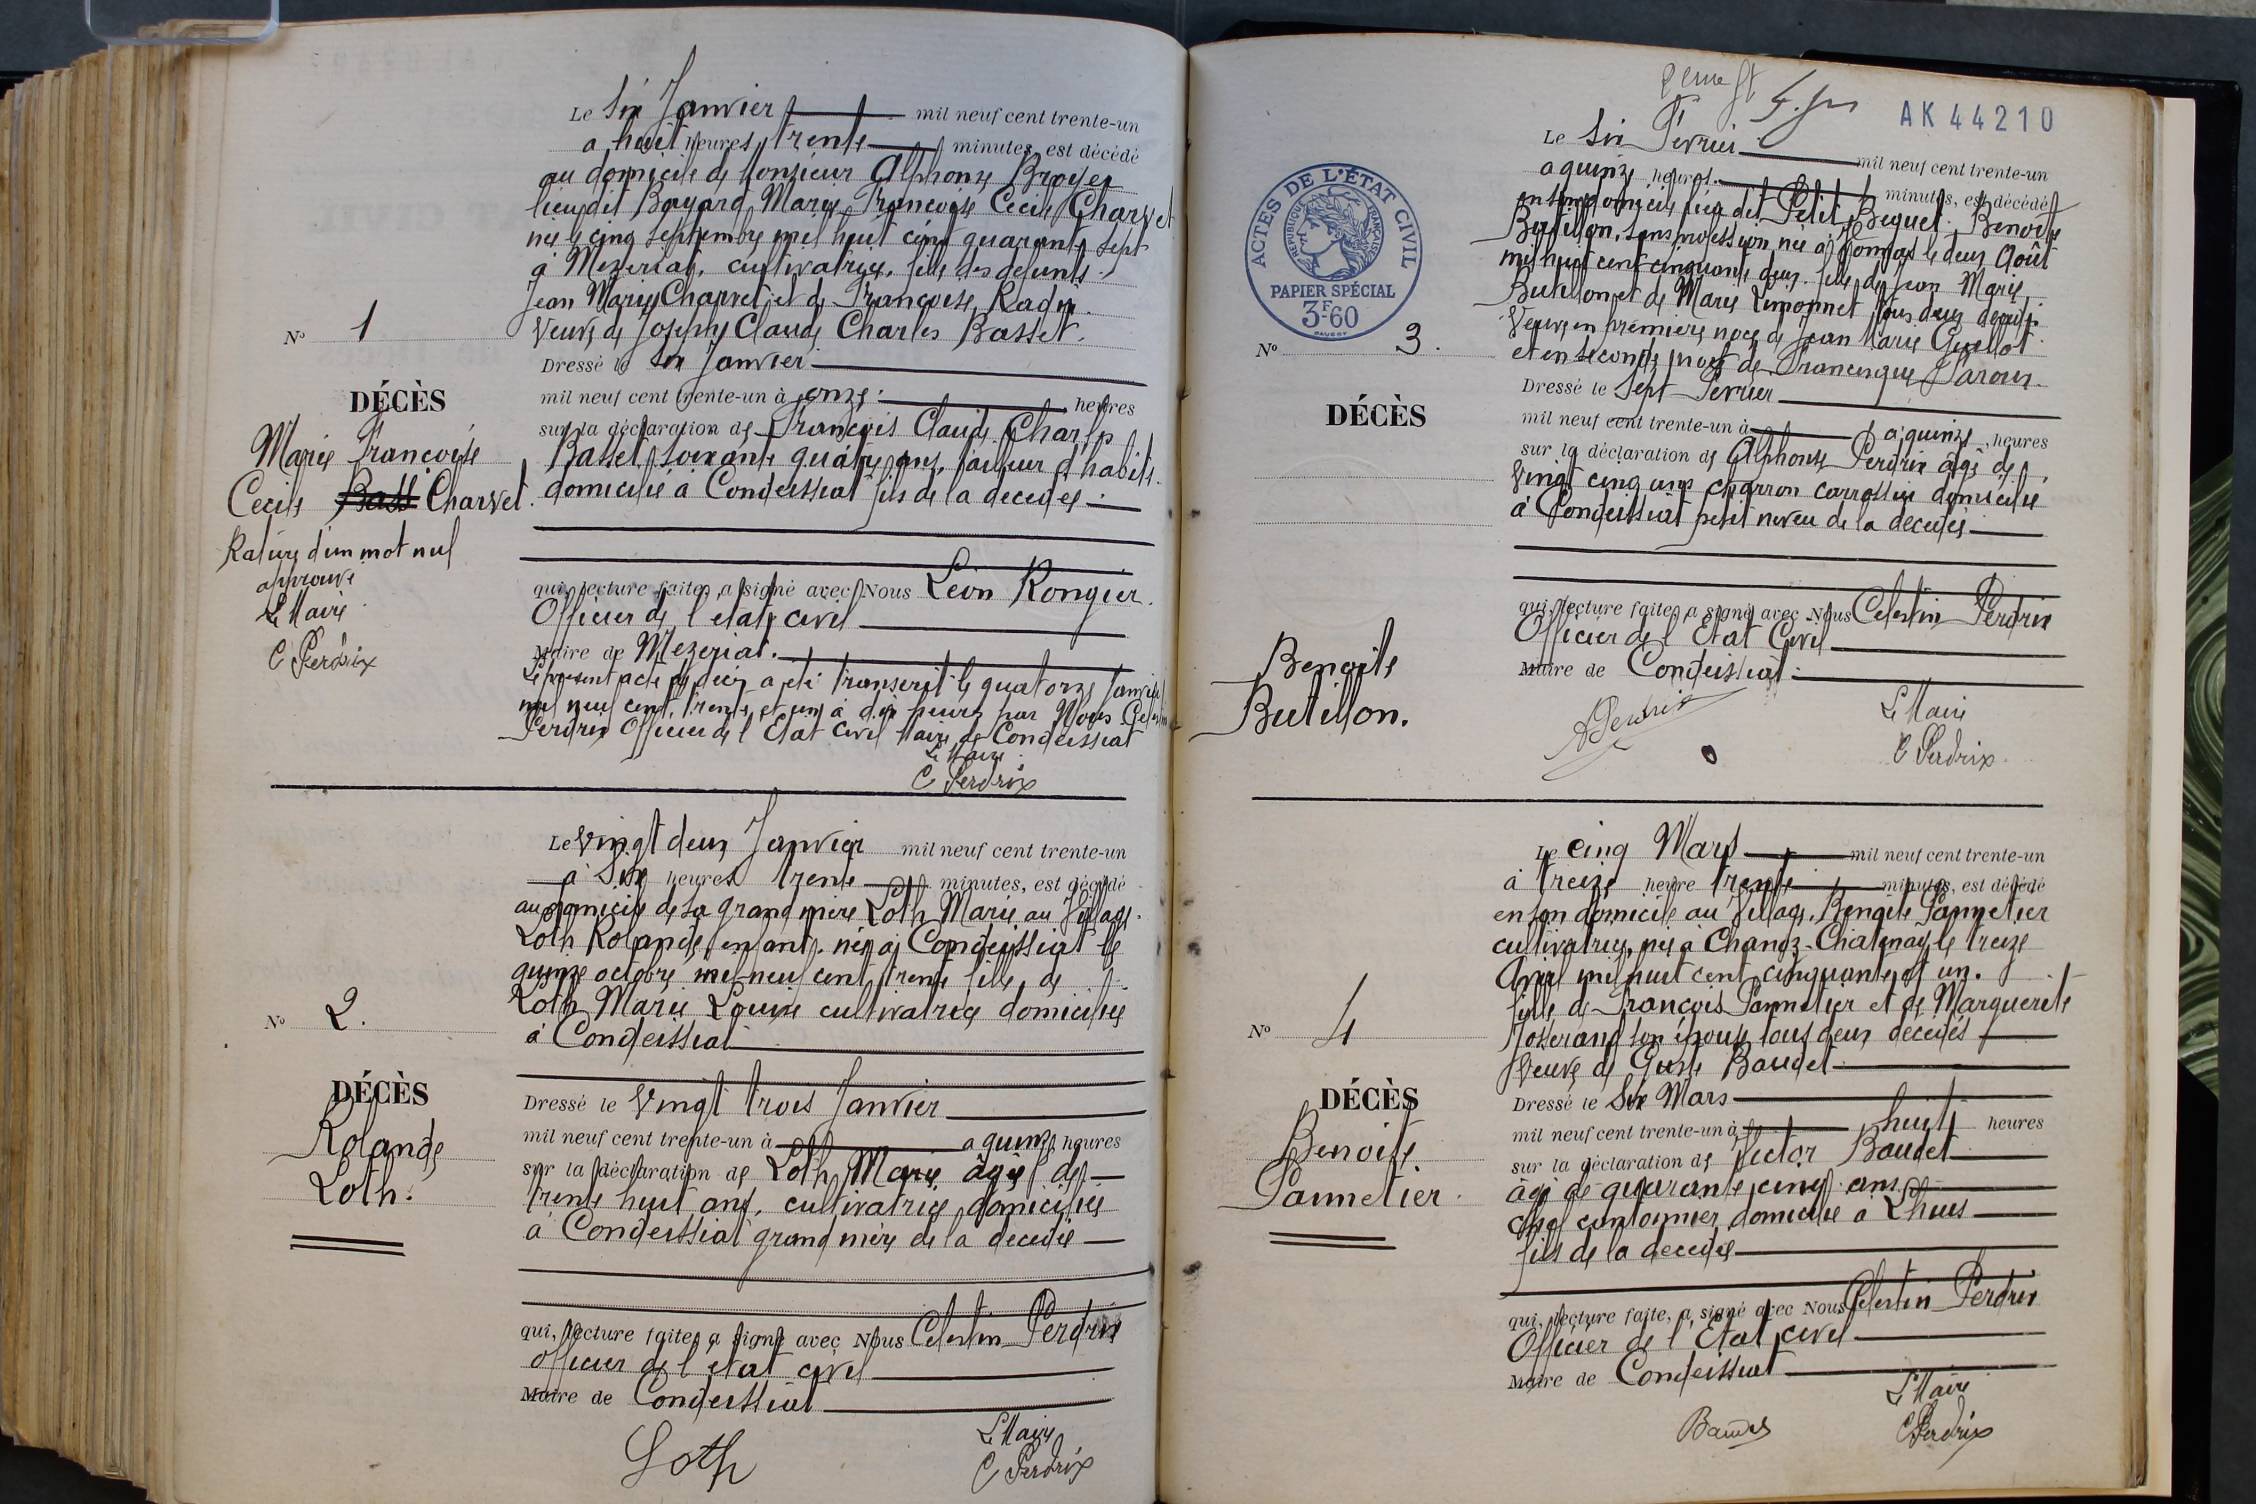 Le six Janvier mil neuf cent trente-un
a huit heures trente minutes, est décédé
au domicile de Monsieur Alphonse Broyer
lieu dit Bayard Marie Francoise Cecile Charvet
née le cinq septembre mil huit cent quarante sept
à Mezeriat, cultivatrice, fille des defunts
Jean Marie Charvet et de Francoise Radix
Veuve de Joseph Claude Charles Basset.
No 1
Dressé le six Janvier
mil neuf cent trente-un à onze heures
DÉCÈS
sur la déclaration de François Claude Charle
Marie Francoise
Basset soixante quatre ans, tailleur d'habits
Cecile Bass Charvet
domicilié à Condeissiat fils de la decedée
Rature d'un mot nul
approuvé
Le Maire
C Perdrix
qui, lecture faite, a signé avec Nous Léon Rongier
Officier de l'etat civil
Maire de Mezeriat.
Le présent acte de décès a été transcrit le quatorze Janvier
mil neuf cent trente et un à dix heures par Nous Celestin
Perdrix Officier de l'Etat Civil Maire de Condeissiat
Le Maire
C Perdrix
Le vingt deux Janvier mil neuf cent trente-un
à Six heures trente minutes, est décédé
au domicile de sa grand mère Loth Marie au Village
Loth Rolande, enfant, née à Condeissiat le
quinze octobre mil neuf cent trente fille de
Loth Marie Louise cultivatrice domiciliée
à Condeissiat
No 2.
DÉCÈS
Rolande
Loth.
Dressé le Vingt trois Janvier
mil neuf cent trente-un à a quinze heures
sur la déclaration de Loth Marie âgée de
trente huit ans, cultivatrice domiciliée
à Condeissiat grand mère de la decedée
qui, lecture faite, a signé avec Nous Celestin Perdrix
officier de l'etat civil
Maire de Condeissiat
Loth
Le Maire
C Perdrix
AK44210
ACTES DE L'ÉTAT CIVIL
RÉPUBLIQUE FRANÇAISE
PAPIER SPÉCIAL
3F.60
Le Six Fevrier mil neuf cent trente-un
a quinze heures minutes, est décédé
en son domicile lieu dit Petit Beguet Benoite
Butillon, sans profession, née à le deux Août
mil huit cent cinquante deux fille de Jean Marie
Butillon et de Marie Limonnet tous deux décédés.
Veuve en première noce de Jean Marie Guillot
et en seconde noce de Francisque
No 3.
DÉCÈS
Benoite
Butillon.
Dressé le Sept Fevrier
mil neuf cent trente-un à a quinze heures
sur la déclaration de Alphonse Perdrix âgé de
vingt cinq ans charron carrossier domicilié
à Condeissiat petit neveu de la decedée
qui, lecture faite, a signé avec Nous Celestin Perdrix
Officier de l'Etat Civil
Maire de Condeissiat
A Perdrix
Le Maire
C Perdrix
Le cinq Mars mil neuf cent trente-un
à treize heure trente minutes, est décédé
en son domicile au Village, Benoite Pannetier
cultivatrice, née à Chanoz-Chatenay le treize
Avril mil huit cent cinquante et un.
fille de François Pannetier et de Marguerite
Mosserand son épouse tous deux décédés
Veuve de Baudet
No 4
DÉCÈS
Benoite
Pannetier
Dressé le Six Mars
mil neuf cent trente-un à huit heures
sur la déclaration de Victor Baudet
âgé de quarante cinq ans
chef cantonnier domicilié à Lhuis
fils de la decedée
qui, lecture faite, a signé avec Nous Celestin Perdrix
Officier de l'Etat civil
Maire de Condeissiat
Baudet
Le Maire
C Perdrix